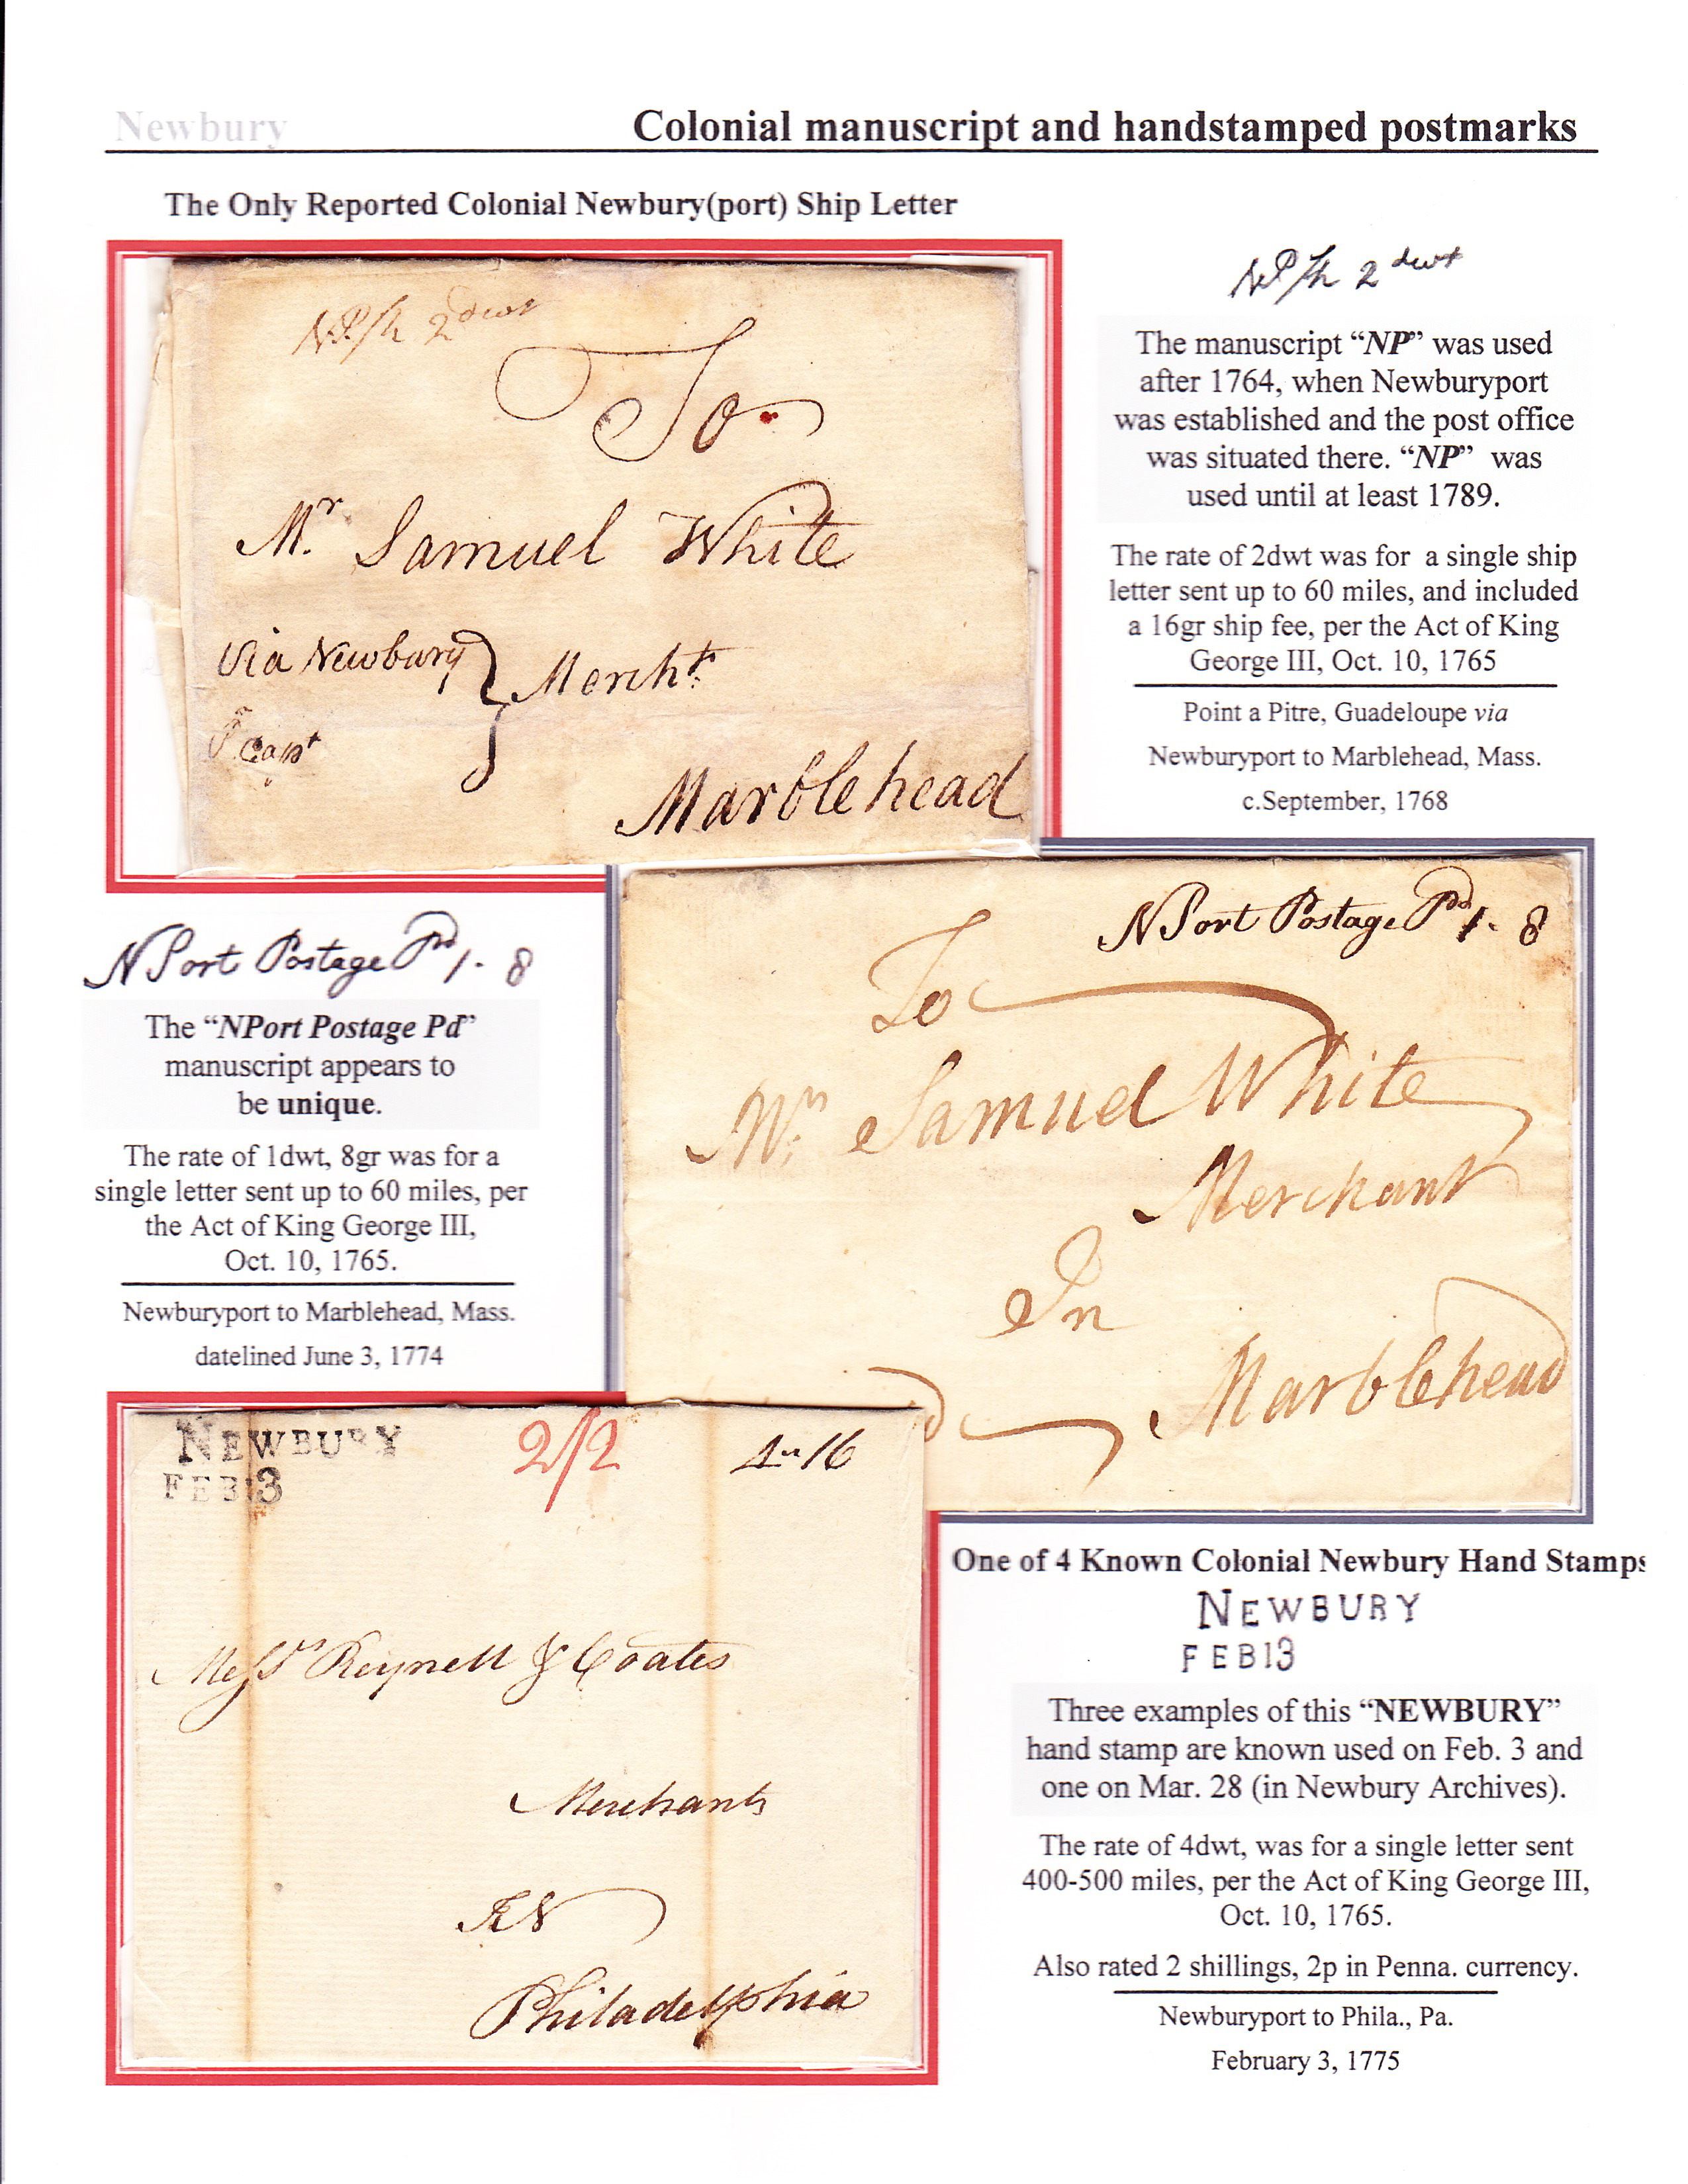 Newbury
Colonial manuscript and handstamped postmarks
The Only Reported Colonial Newbury(port) Ship Letter
NP/Sh 2 dwt
To
Mr. Samuel White
Via Newbury
Mercht.
Capt
Marblehead
NP/Sh 2 dwt
The manuscript “NP” was used
after 1764, when Newburyport
was established and the post office
was situated there. “NP” was
used until at least 1789.
The rate of 2dwt was for a single ship
letter sent up to 60 miles, and included
a 16gr ship fee, per the Act of King
George III, Oct. 10, 1765
Point a Pitre, Guadeloupe via
Newburyport to Marblehead, Mass.
c.September, 1768
NPort Postage Pd 1. 8
The “NPort Postage Pd”
manuscript appears to
be unique.
The rate of 1dwt, 8gr was for a
single letter sent up to 60 miles, per
the Act of King George III,
Oct. 10, 1765.
Newburyport to Marblehead, Mass.
datelined June 3, 1774
NPort Postage Pd 1. 8
To
Mr. Samuel White
Merchant
In
Marblehead
NEWBURY
FEB 13
2/2
Messrs Reynell & Coates
Merchants
IN
Philadelphia
One of 4 Known Colonial Newbury Hand Stamps
NEWBURY
FEB13
Three examples of this “NEWBURY”
hand stamp are known used on Feb. 3 and
one on Mar. 28 (in Newbury Archives).
The rate of 4dwt, was for a single letter sent
400-500 miles, per the Act of King George III,
Oct. 10, 1765.
Also rated 2 shillings, 2p in Penna. currency.
Newburyport to Phila., Pa.
February 3, 1775